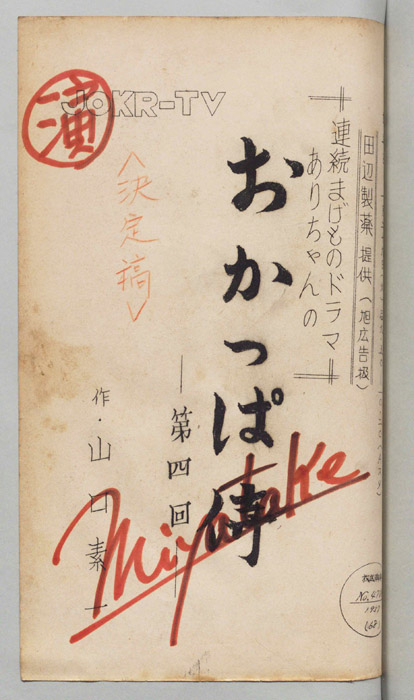 JOKR-TV
演
田辺製薬提供（旭広告扱）
連続まげものドラマ
ありちゃんの
おかっぱ侍
―第四回―
＜決定稿＞
作・山口素一
Miyatake